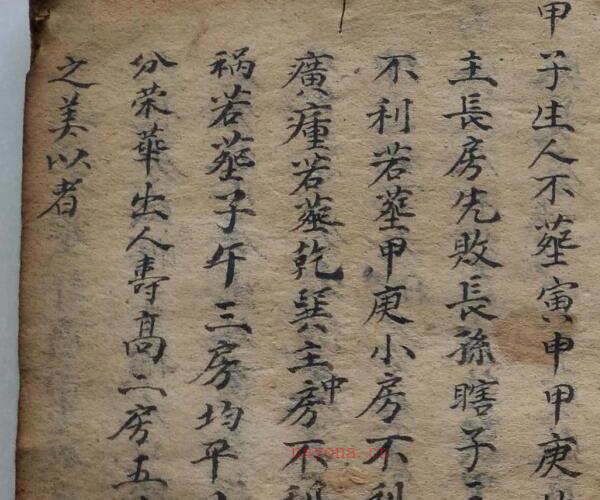 甲子生人不塟寅申甲庚
主長房先敗長孫瞎子
不利若塟甲庚小房不利
癀瘇若塟乾巽主中房不利
禍若塟子午三房均平
分荣華出人壽高二房五
之美以者